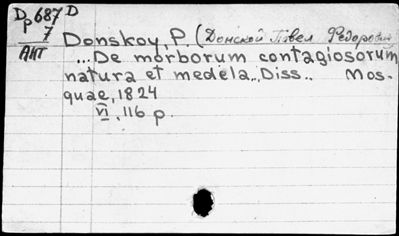 Dp687D
7
Акт
Donskoy, P. (Донской Павел Федорович)
...De morborum contagiosorum
natura et medela.. Diss.. Mos-
quae, 1824
VI, 116 p.